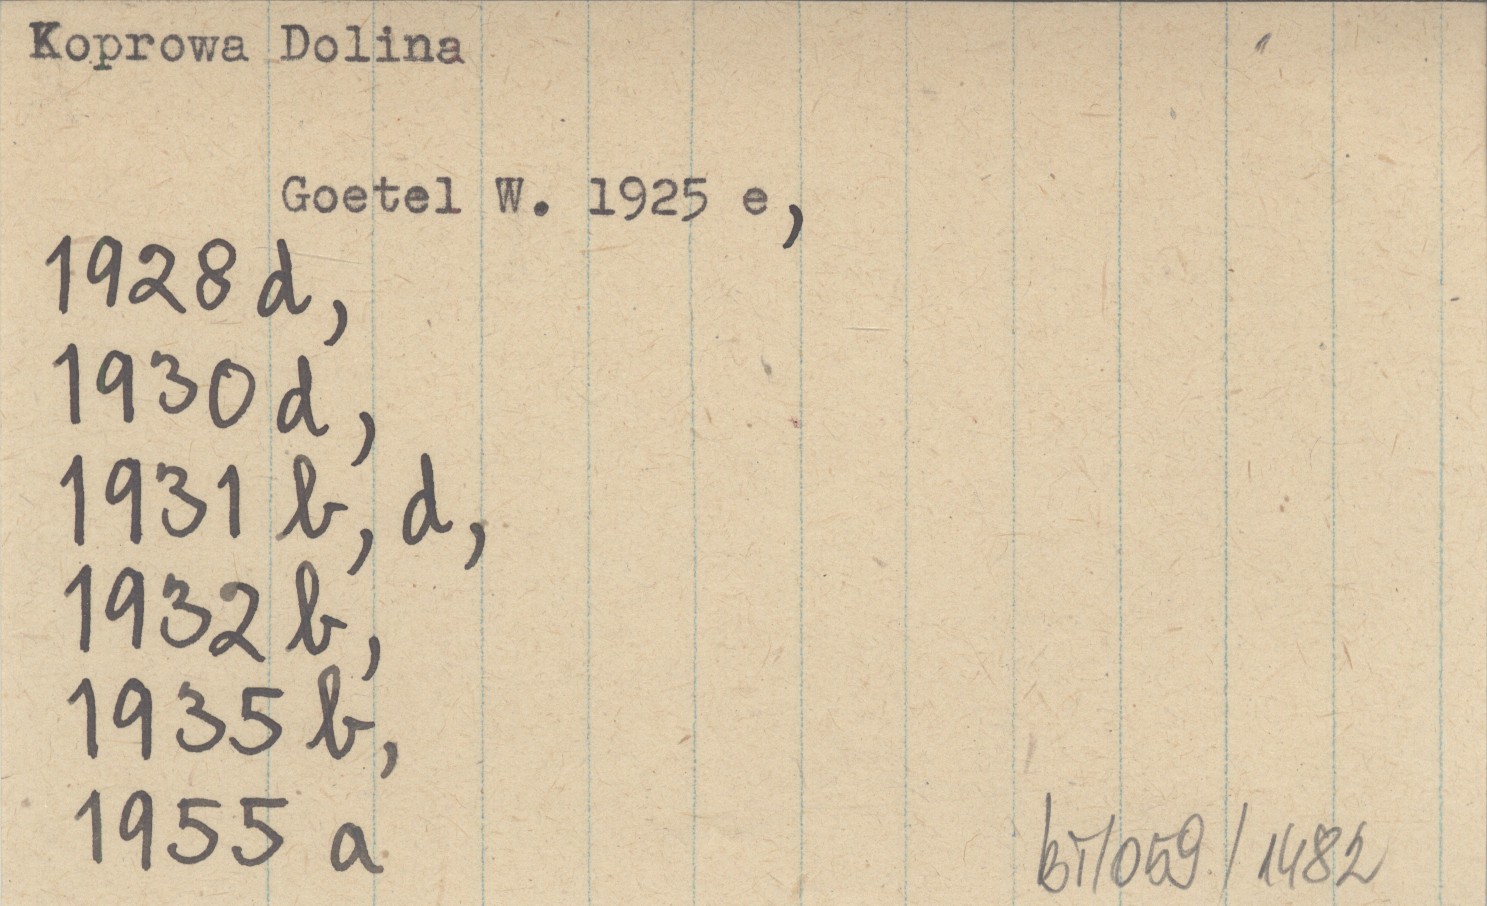 Koprowa Dolina
Goetel W. 1925 e,
1928 d,
1930 d,
1931 b, d,
1932 b,
1935 b,
1955 a
bT/059/1482